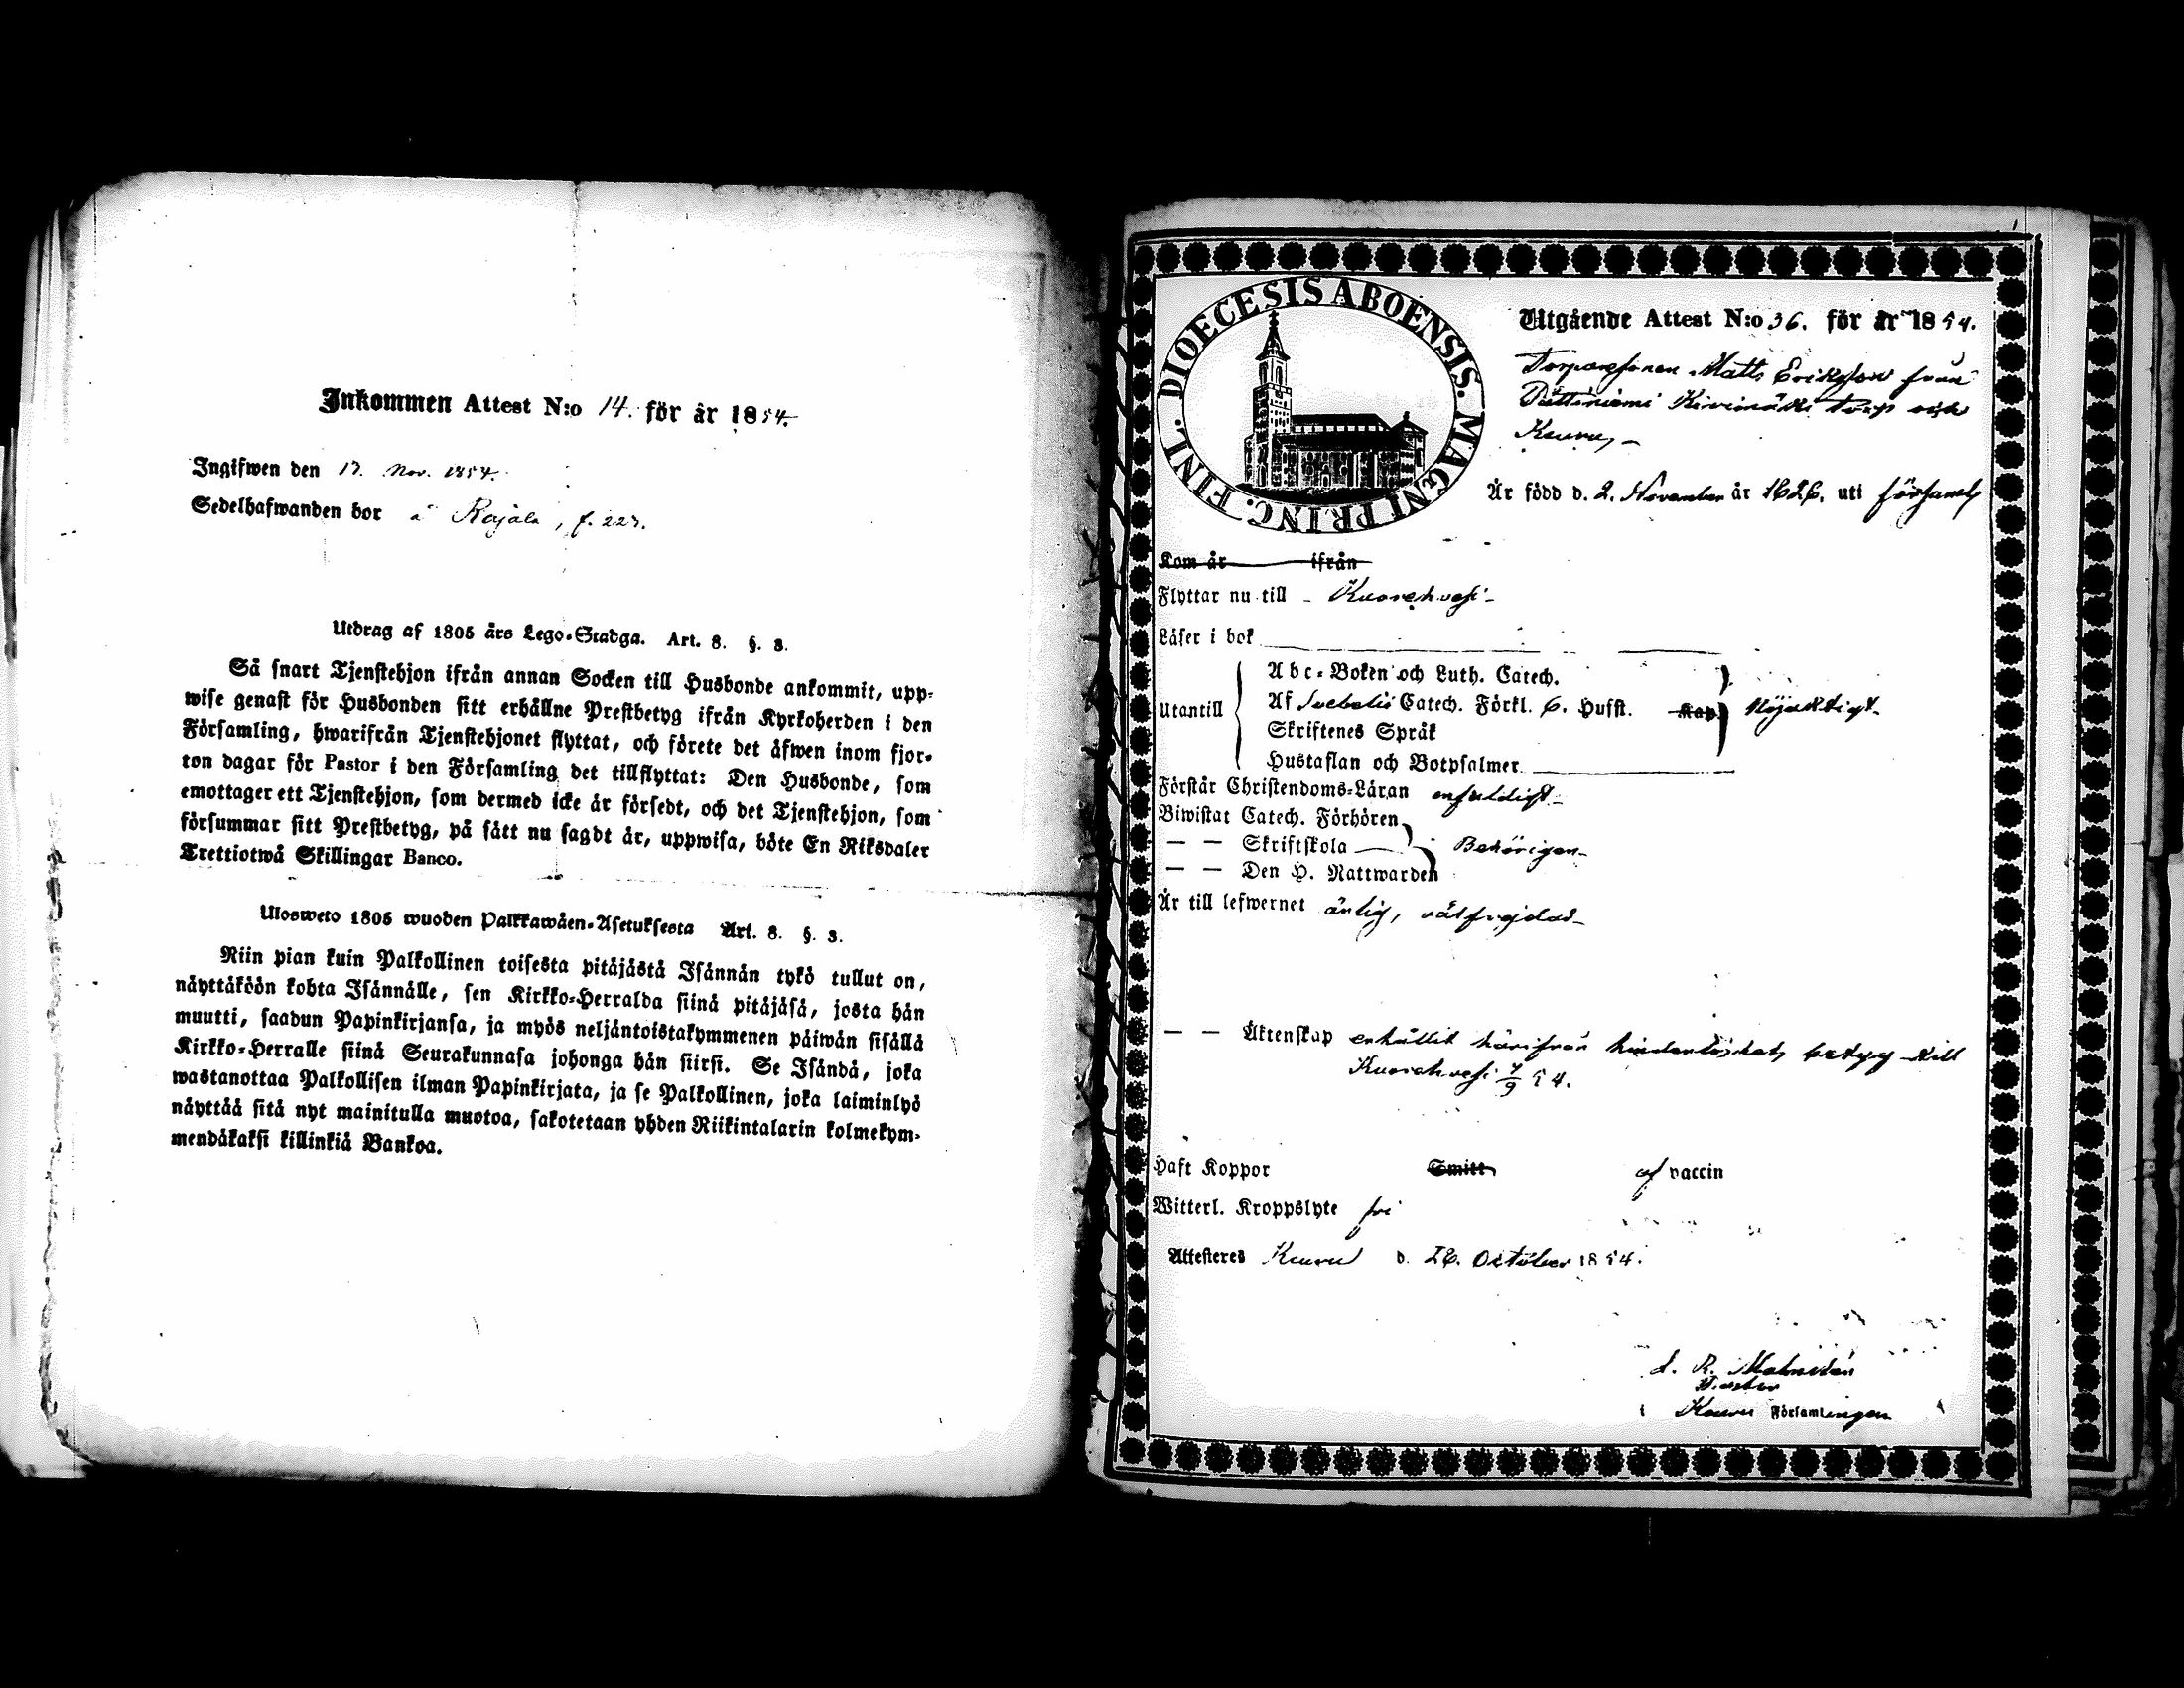 Inkommen Attest N:o 14. för år 1854.
Ingifwen den 17. Nov. 1854.
Sedelhafwanden bor å Rajala, f. 227.
Utdrag af 1805 års Lego-Stadga. Art. 8. §. 3.
Så snart Tjenstehjon ifrån annan Socken till Husbonde ankommit, upp-
wise genast för Husbonden sitt erhållne Prestbetyg ifrån Kyrkoherden i den
Församling, hwarifrån Tjenstehjonet flyttat, och förete det äfwen inom fjor-
ton dagar för Pastor i den Församling det tillflyttat: Den Husbonde, som
emottager ett Tjenstehjon, som dermed icke är försedt, och det Tjenstehjon, som
försummar sitt Prestbetyg, på sätt nu sagdt är, uppwisa, böte En Riksdaler
Trettiotwå Skillingar Banco.
Ulosweto 1805 wuoden Palkkawäen-Asetuksesta Art. 8. §. 3.
Niin pian kuin Palkollinen toisesta pitäjästä Isännän tykö tullut on,
näyttäköön kohta Isännälle, sen Kirkko-Herralda siinä pitäjäsä, josta hän
muutti, saadun Papinkirjansa, ja myös neljäntoistakymmenen päiwän sisällä
Kirkko-Herralle siinä Seurakunnasa johonga hän siirsi. Se Isändä, joka
wastanottaa Palkollisen ilman Papinkirjata, ja se Palkollinen, joka laiminlyö
näyttää sitä nyt mainitulla muotoa, sakotetaan yhden Riikintalarin kolmekym-
mendäkaksi killinkiä Bankoa.
DIOECESIS ABOENSIS. MAGNI PRINC. FINL.
Utgående Attest N:o 36. för år 1854.
Torparesonen Matts Eriksson från
Kivimäki torp och
Keuru,
Är född d. 2. November år 1826. uti församl
Kom år ifrån
Flyttar nu till Kuorehvesi
Läser i bok
Abc-Boken och Luth. Catech.
Utantill Af Svebelii Catech. Förkl. 6. Hufst. Kap. Nöjaktigt
Skriftenes Språk
Hustaflan och Botpsalmer
Förstår Christendoms-Läran enfaldigt
Biwistat Catech. Förhören
— — Skriftskola Behörigen
— — Den H. Nattwarden
Är till lefwernet ärlig, välfrejdad
— — Äktenskap erhållit härifrån hinderlöshets betyg till
Kuorehvesi 7/9 54.
Haft Koppor Smitt af vaccin
Witterl. Kroppslyte fri
Attesteras Keuru d. 26. October 1854.
Pastor
i Keuru Församlingen